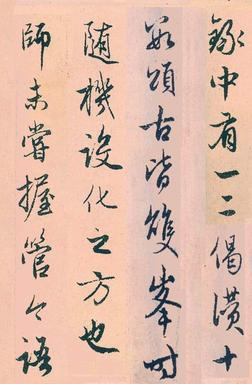 錄中有一二偈讚十
數頌古皆雙峯時
随機設化之方也
師未嘗握管今語